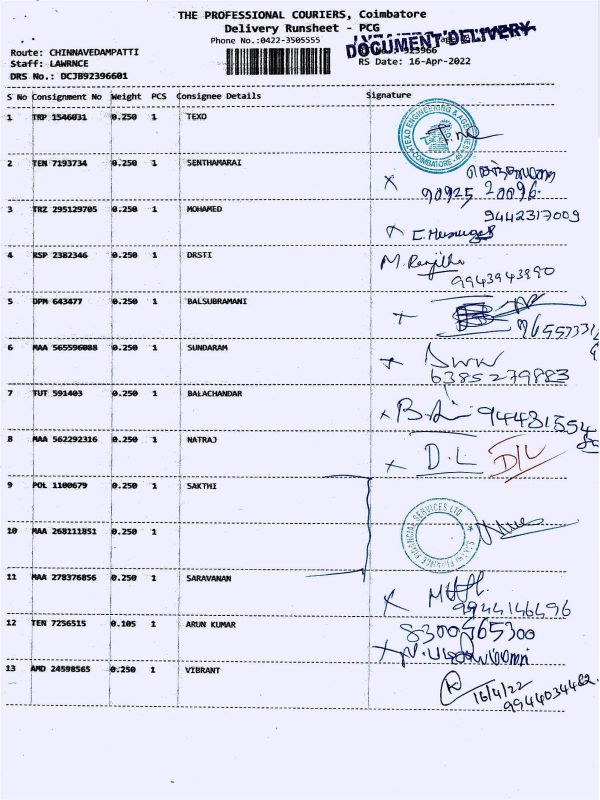 THE PROFESSIONAL COURIERS, Coimbatore
Delivery Runsheet - PCG
Phone No.:0422-3505555
DOCUMENT DELIVERY
Route: CHINNAVEDAMPATTI
923966
Staff: LAWRNCE
RS Date: 16-Apr-2022
DRS No.: DCJB92396601
S No Consignment No Weight PCS Consignee Details Signature
1 TRP 1546031 0.250 1 TEXO
TEXO ENGINEERING & AGENCIES
COIMBATORE - 49
2 TEN 7193734 0.250 1 SENTHAMARAI
90925 20096
3 TRZ 295129705 0.250 1 MOHAMED
9442317009
4 RSP 2382346 0.250 1 DRSTI
M. Ranjitha
9943943990
5 DPM 643477 0.250 1 BALSUBRAMANI
6 MAA 565596088 0.250 1 SUNDARAM
6385279883
7 TUT 591403 0.250 1 BALACHANDAR
8 MAA 562292316 0.250 1 NATRAJ
D.L D/L
9 POL 1100679 0.250 1 SAKTHI
10 MAA 268111851 0.250 1
FINANCE FINANCIAL SERVICES LTD
11 MAA 278376856 0.250 1 SARAVANAN
9944146496
12 TEN 7256515 0.105 1 ARUN KUMAR
8300465300
13 AMD 24598565 0.250 1 VIBRANT
16/4/22
9944034482